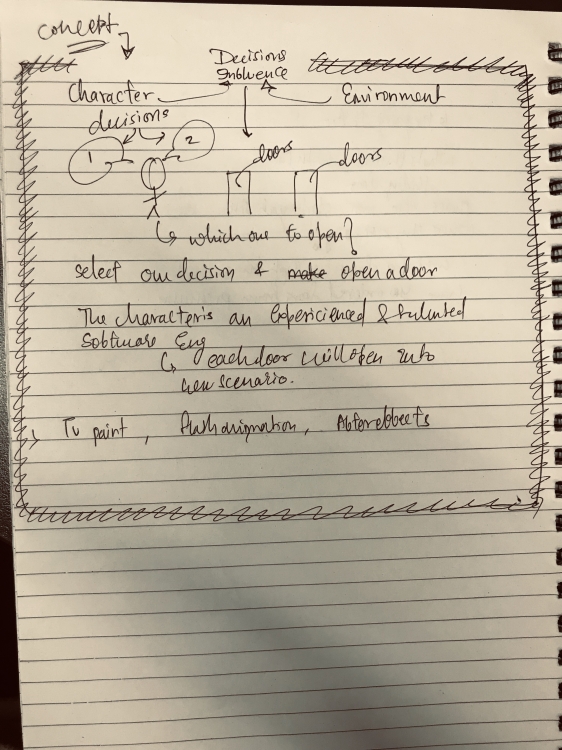 concept
Decisions
Influence
Character
Environment
decisions
1
2
doors
doors
↳ which one to open?
select one decision & make open a door
The character is an Expericienced & talented
Software Eng
↳ each door will open into
new scenario.
Tv paint, flash animation, Aftereffects